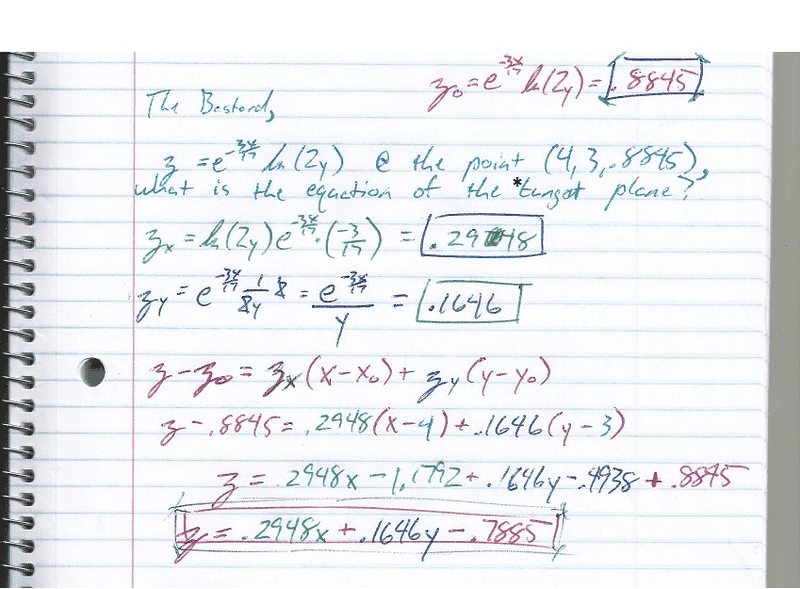 z₀ = e^(-3x/17) ln(2y) = .8845
The Bastard,
z = e^(-3x/17) ln(2y) @ the point (4, 3, .8845),
what is the equation of the *tanget plane?
zₓ = ln(2y) e^(-3x/17) · (-3/17) = .2948
z_y = e^(-3x/17) 1/2y 2 = e^(-3x/17)/y = .1646
z - z₀ = zₓ(x - x₀) + z_y(y - y₀)
z - .8845 = .2948(x - 4) + .1646(y - 3)
z = .2948x - 1.1792 + .1646y - .4938 + .8845
z = .2948x + .1646y - .7885